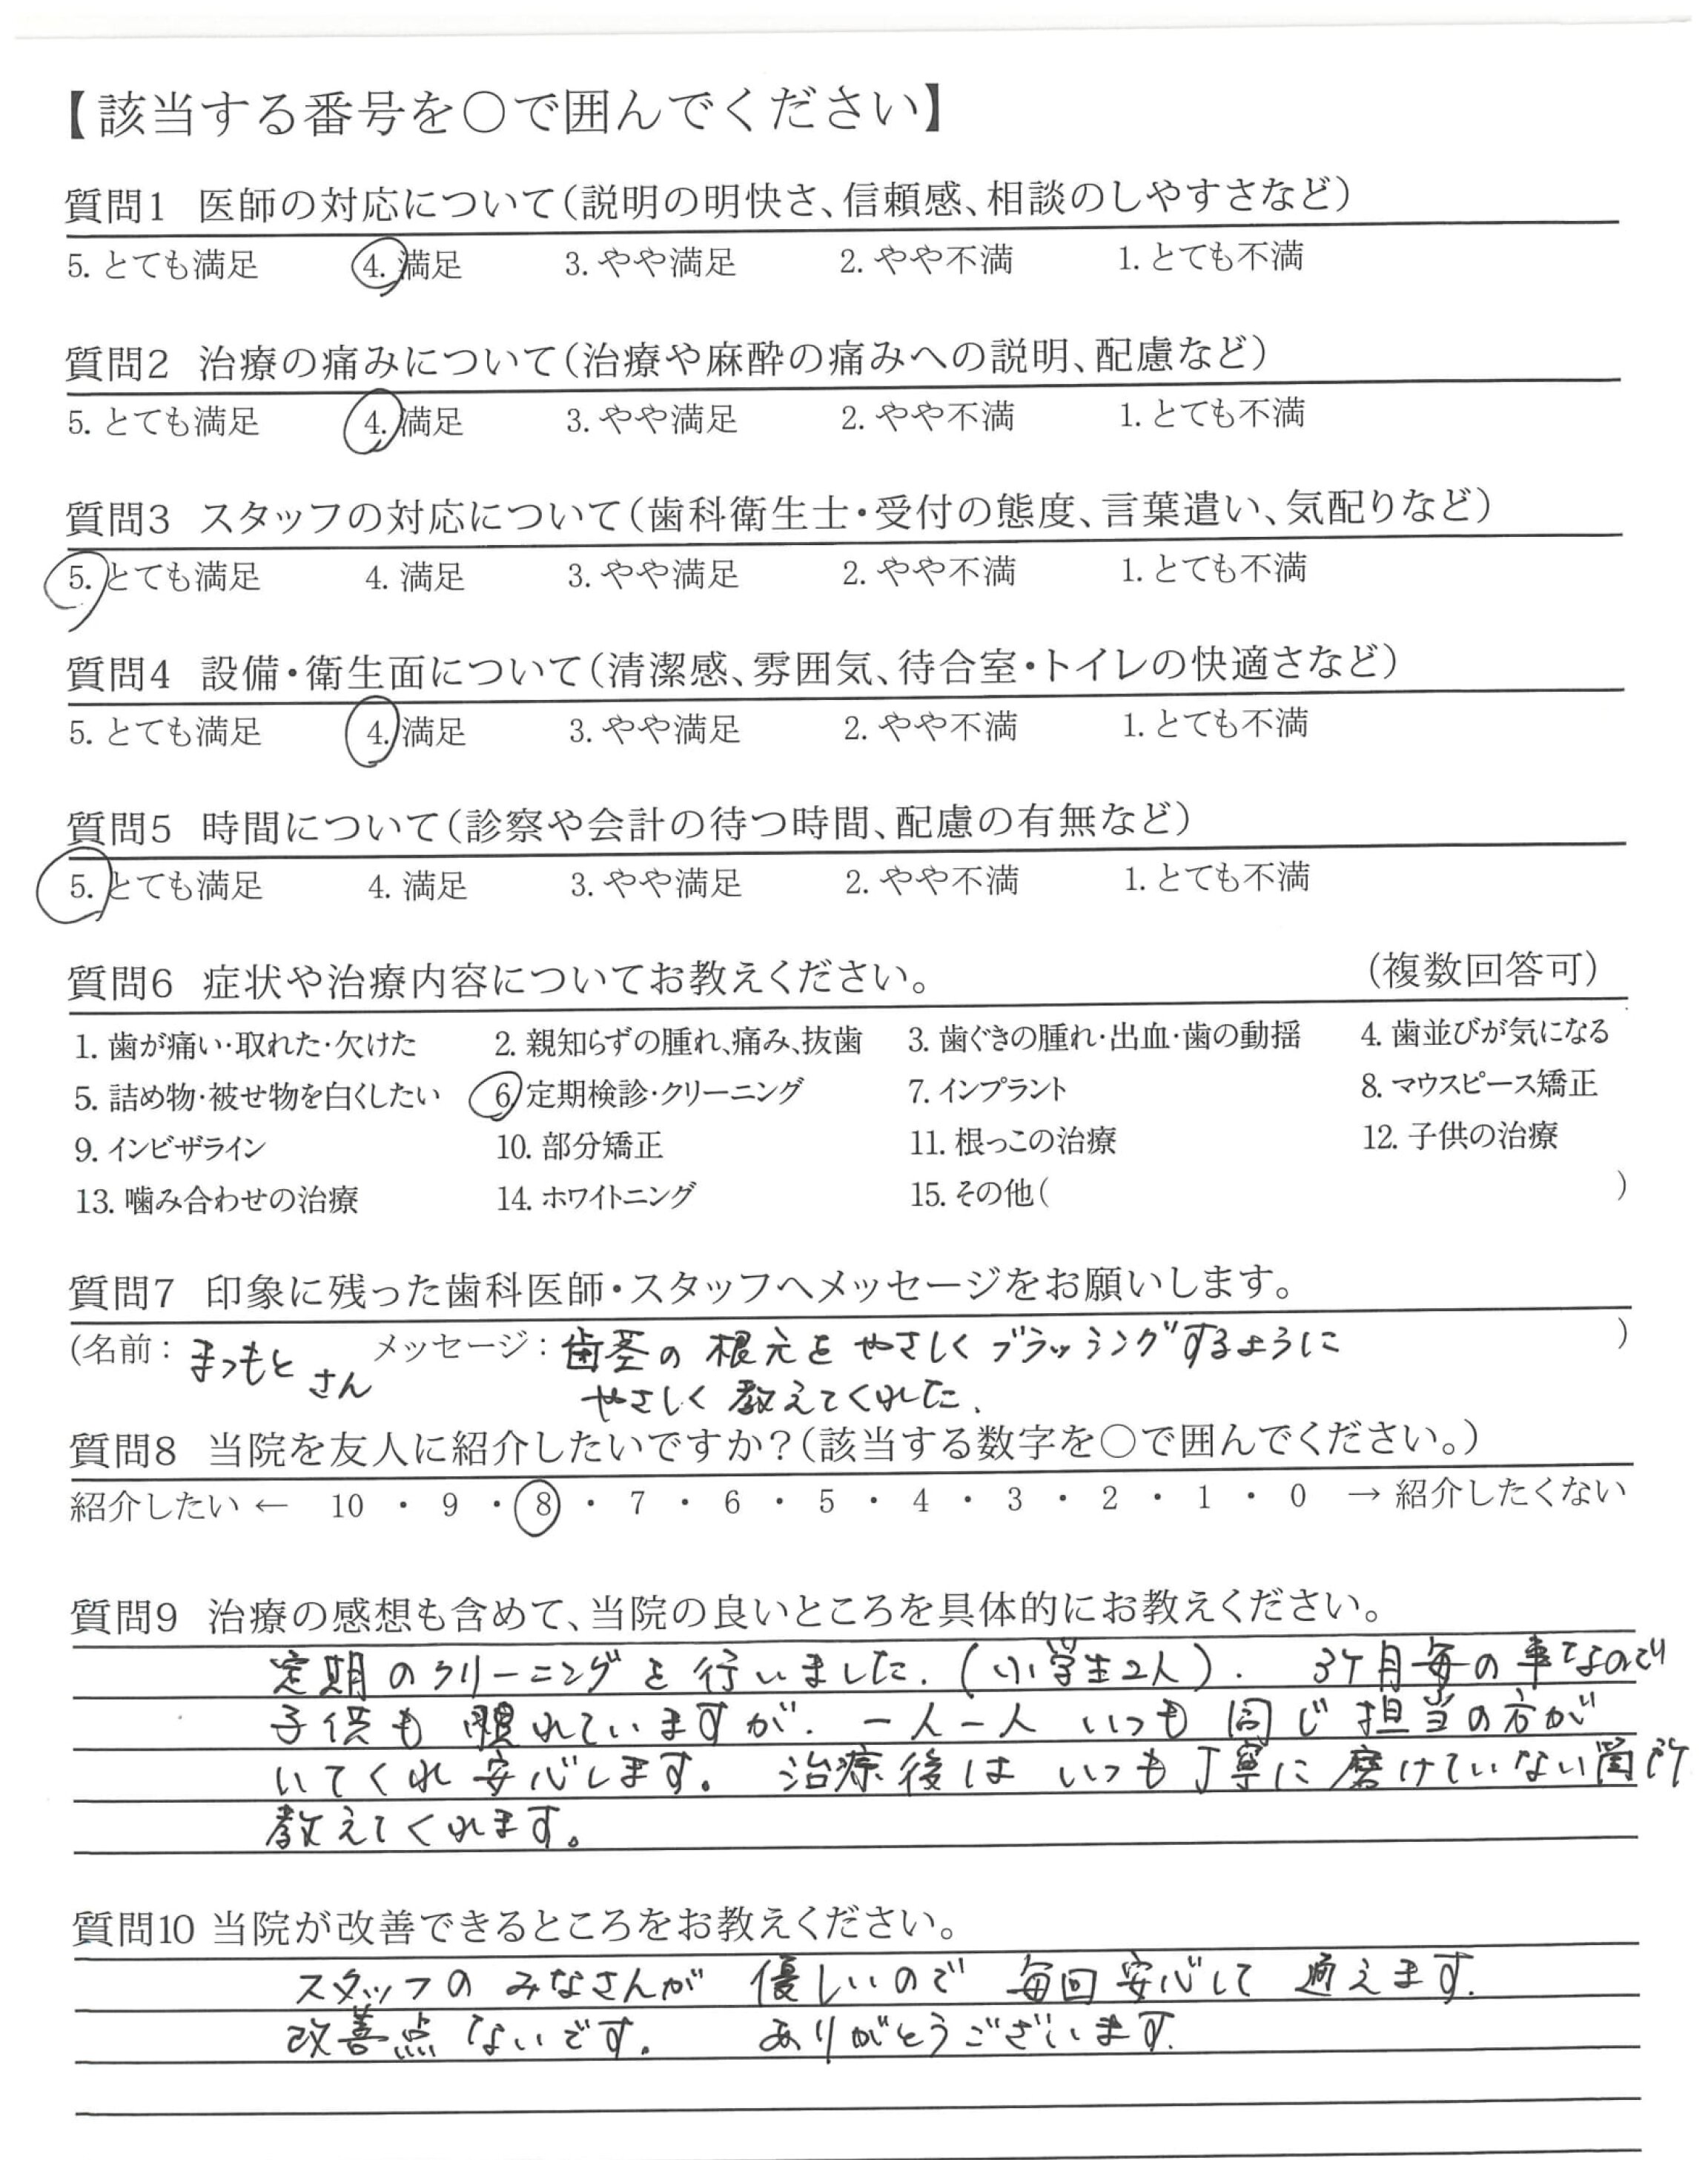 【該当する番号を○で囲んでください】
質問1 医師の対応について(説明の明快さ、信頼感、相談のしやすさなど)
5. とても満足 4. 満足 3. やや満足 2. やや不満 1. とても不満
質問2 治療の痛みについて(治療や麻酔の痛みへの説明、配慮など)
5. とても満足 4. 満足 3. やや満足 2. やや不満 1. とても不満
質問3 スタッフの対応について(歯科衛生士・受付の態度、言葉遣い、気配りなど)
5. とても満足 4. 満足 3. やや満足 2. やや不満 1. とても不満
質問4 設備・衛生面について(清潔感、雰囲気、待合室・トイレの快適さなど)
5. とても満足 4. 満足 3. やや満足 2. やや不満 1. とても不満
質問5 時間について(診察や会計の待つ時間、配慮の有無など)
5. とても満足 4. 満足 3. やや満足 2. やや不満 1. とても不満
質問6 症状や治療内容についてお教えください。 (複数回答可)
1. 歯が痛い・取れた・欠けた 2. 親知らずの腫れ、痛み、抜歯 3. 歯ぐきの腫れ・出血・歯の動揺 4. 歯並びが気になる
5. 詰め物・被せ物を白くしたい 6. 定期検診・クリーニング 7. インプラント 8. マウスピース矯正
9. インビザライン 10. 部分矯正 11. 根っこの治療 12. 子供の治療
13. 噛み合わせの治療 14. ホワイトニング 15. その他( )
質問7 印象に残った歯科医師・スタッフへメッセージをお願いします。
(名前: まつもと さん メッセージ: 歯茎の 根元を やさしく ブラッシングするように )
やさしく 教えてくれた.
質問8 当院を友人に紹介したいですか?(該当する数字を○で囲んでください。)
紹介したい ← 10 ・ 9 ・ 8 ・ 7 ・ 6 ・ 5 ・ 4 ・ 3 ・ 2 ・ 1 ・ 0 → 紹介したくない
質問9 治療の感想も含めて、当院の良いところを具体的にお教えください。
定期のクリーニングを行いました.(小学生2人). 3ケ月毎の事なので
子供も 慣れていますが. 一人一人 いつも 同じ 担当の方が
いてくれ安心します。 治療後は いつも丁寧に 磨けていない箇所
教えてくれます。
質問10 当院が改善できるところをお教えください。
スタッフの みなさんが 優しいので 毎回 安心して 通えます.
改善点 ないです。 ありがとうございます.